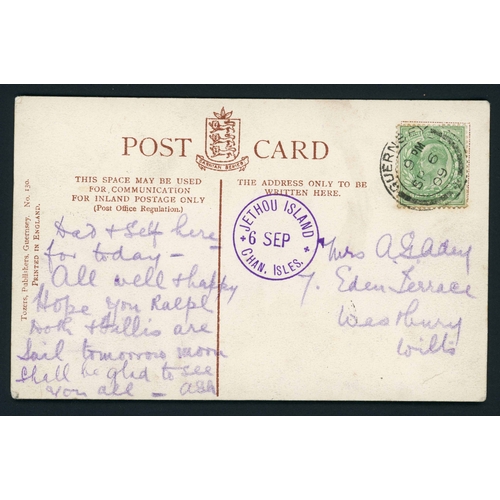 POST CARD
SARNIAN SERIES
THIS SPACE MAY BE USED
FOR COMMUNICATION
FOR INLAND POSTAGE ONLY
(Post Office Regulation.)
THE ADDRESS ONLY TO BE
WRITTEN HERE.
Tozers, Publishers, Guernsey. No. 139.
PRINTED IN ENGLAND.
GUERNSEY
SP 6
09
JETHOU ISLAND
6 SEP
CHAN. ISLES.
Dad & Self here
for today -
All well & happy
Hope you Ralph
& are
Sail tomorrow morn
Shall be glad to see
you all -
Mrs A
7. Eden Terrace
Westbury
Wilts